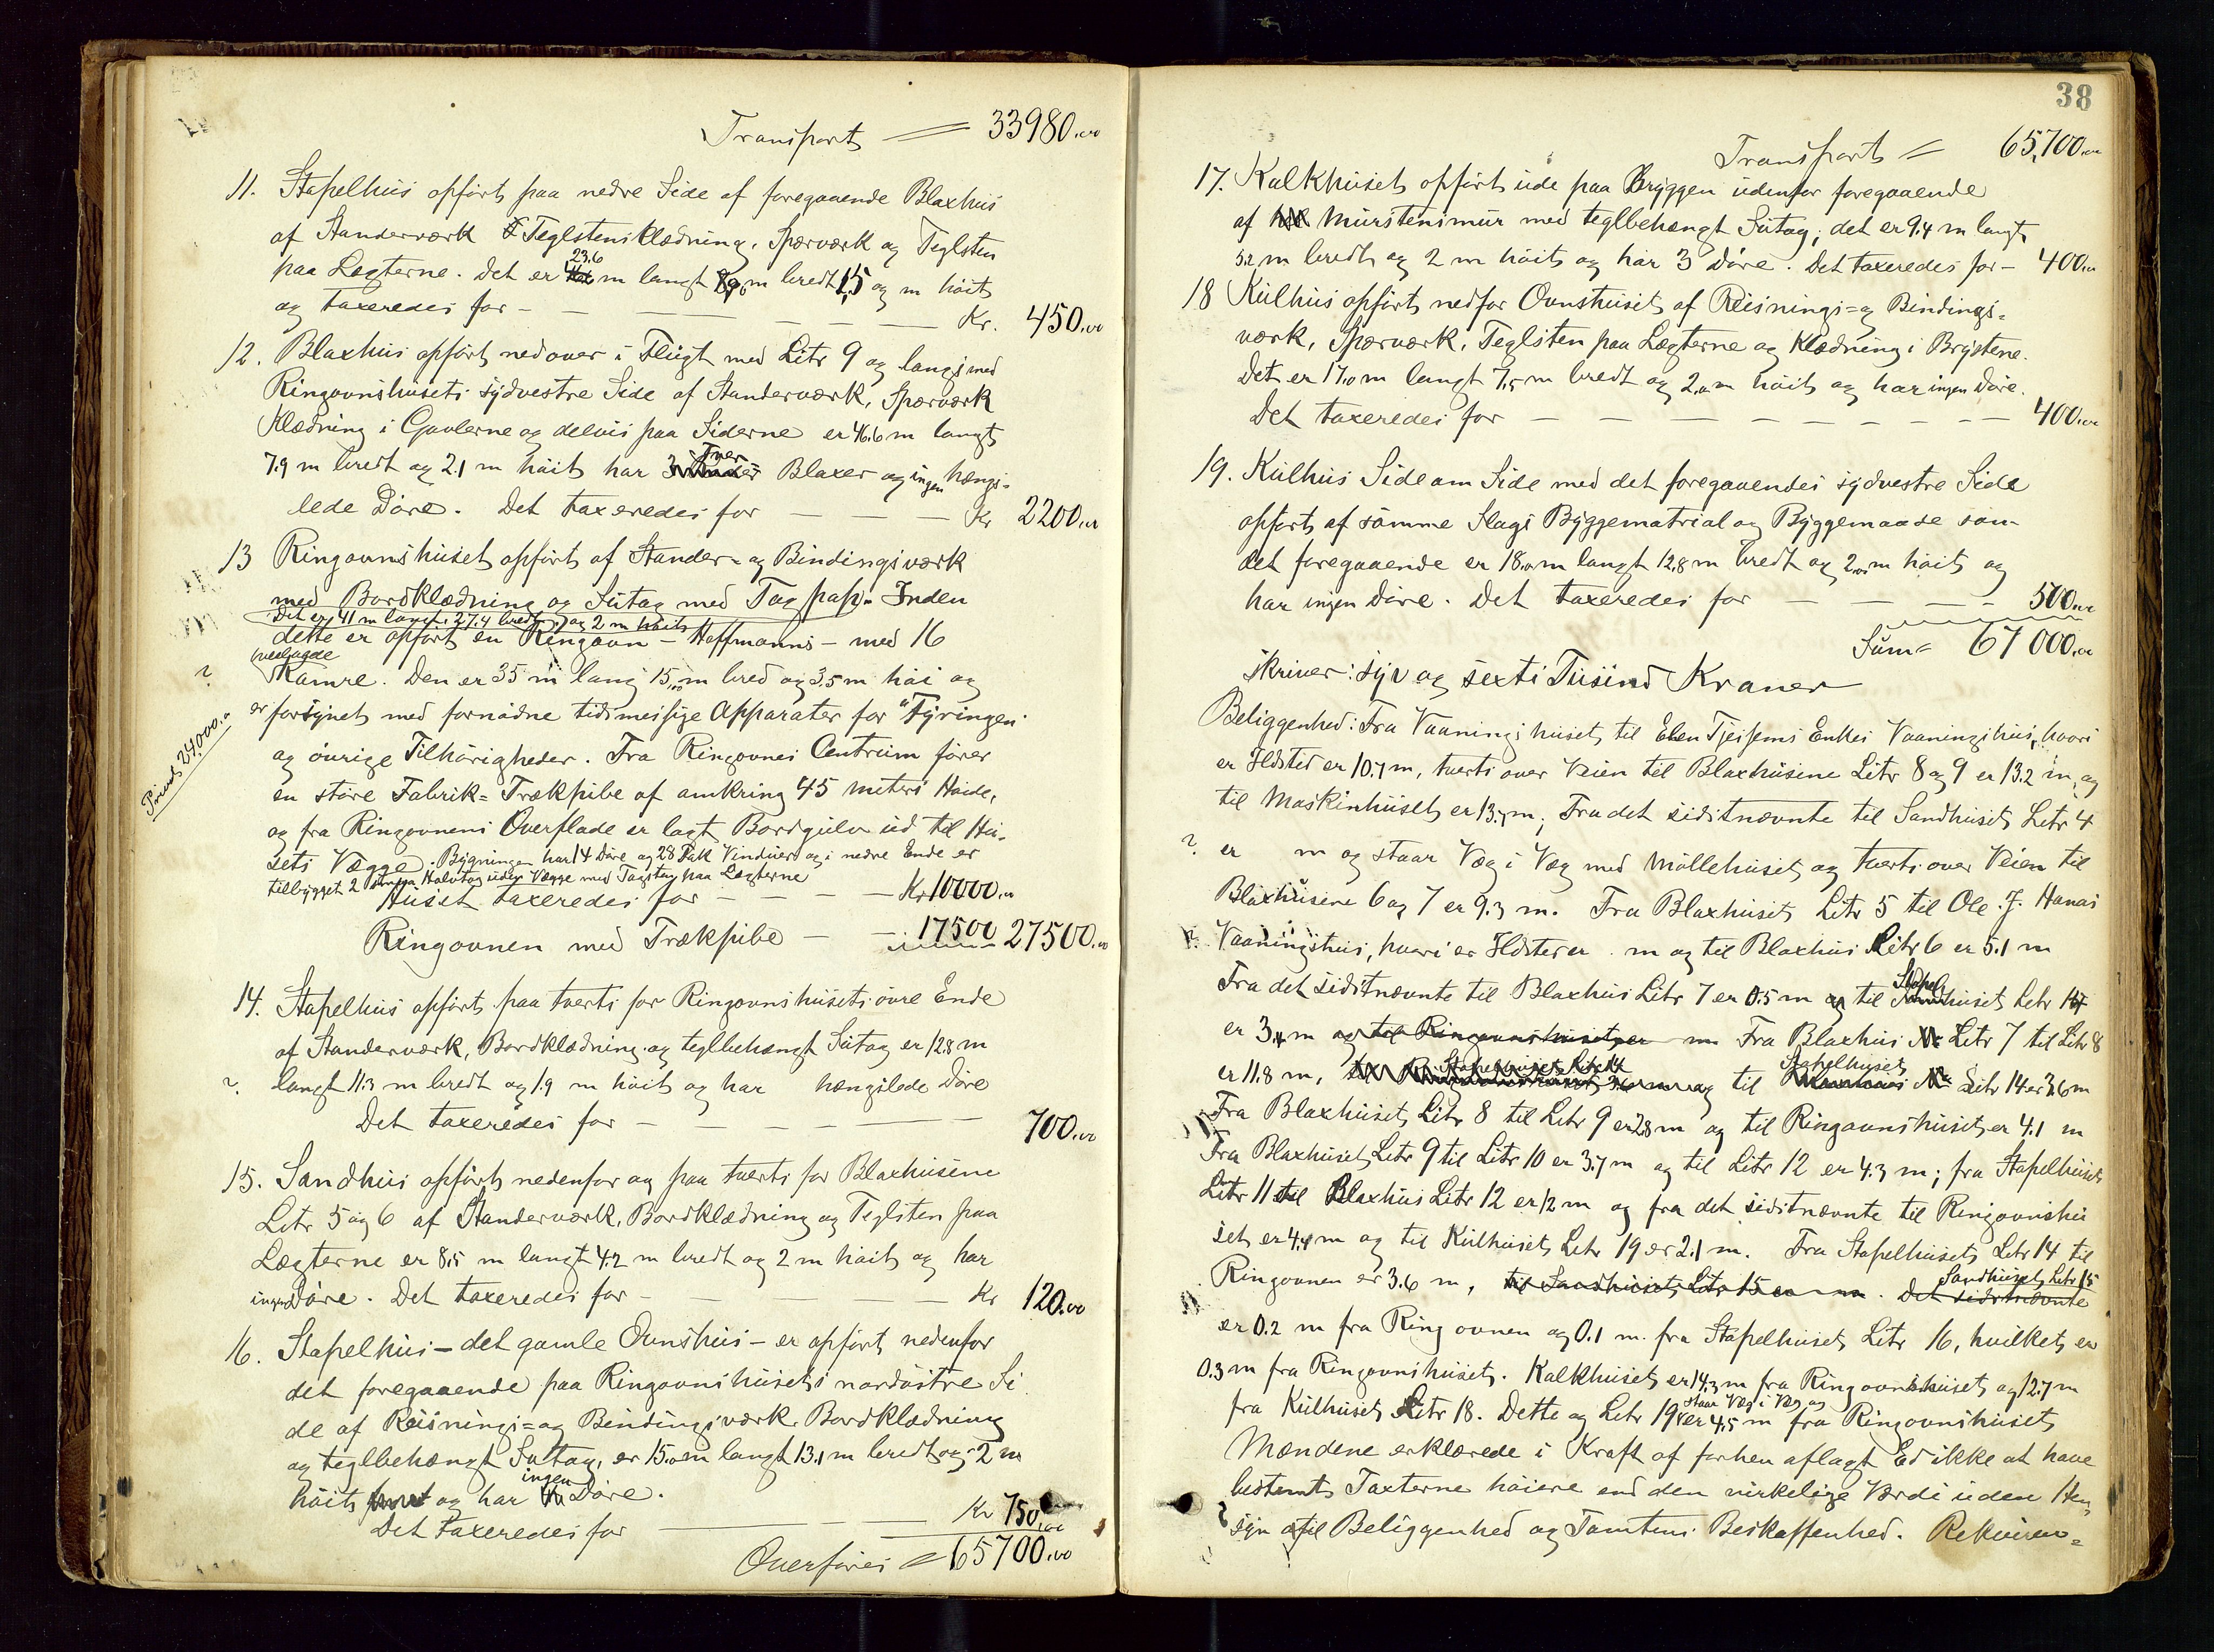 Transport = 33980.00
11. Stapelhus opført paa nedre Side af foregaaende Blaxhus
af Standerværk & Teglstensklædning. Spærværk og Teglsten
23.6
paa Lægterne. Det er m langt m bredt 1,5 og m høit
og taxeredes for - Kr. 450.00
12. Blaxhus opført nedover i Flugt med Litr 9 og langs med
Ringovnshusets sydvestre Side af Standerværk, Spærværk
Klædning i Gavlerne og delvis paa Siderne er 46.6 m langt
Tver
7.9 m bredt og 2.1 m høit har 3 Blaxer og ingen hængs-
lede Døre. Det taxeredes for - Kr 2200.00
13 Ringovnshuset opført af Stander- og Bindingsværk
med Bordklædning og Sutag med Tagpap. Inden
Det er 41 m langt, 27.4 bredt og 2 m høit
dette er opført en Ringovn - Hoffmanns - med 16
hvelvede
? Kamre. Den er 35 m lang 15,00 m bred og 3.5 m høi og
er forsynet med fornødne tidsmessige Apparater for Fyringen
og øvrige Tilhørigheder. Fra Ringovnes Centrum fører
en støre Fabrik- Trækpibe af omkring 45 meters Høide,
Privat 24000.00
og fra Ringovnens Overflade er lagt Bordgulv ud til Hu-
sets Vægge. Bygningen har 14 Døre og 28 Fak Vinduer og i nedre Ende er
tilbygget 2 Halvtag uden Vægge med Tagsten paa Lægterne
Huset taxeredes for - Kr 10000.00
Ringovnen med Trækpibe - 17500 27500.00
14. Stapelhus opført paa tverts for Ringovnshusets øvre Ende
af Standerværk, Bordklædning og teglbehængt Sutag er 12.8 m
? langt 11.3 m bredt og 1.9 m høit og har hængslede Døre
Det taxeredes for - 700.00
15. Sandhus opført nedenfor og paa tverts for Blaxhusene
Litr 5 og 6 af Standerværk, Bordklædning og Teglsten paa
Lægterne er 8.5 m langt 4.2 m bredt og 2 m høit og har
ingen Døre. Det taxeredes for - Kr 120.00
16. Stapelhus - det gamle Ovnshus - er opført nedenfor
det foregaaende paa Ringovnshusets nordøstre Si
de af Reisnings- og Bindingsværk. Bordklædning
og teglbehængt Sutag, er 15.0 m langt 13.1 m bredt og 2 m
ingen
høit og har Døre.
Det taxeredes for - Kr 750.00
Overføres = 65700.00
38
Transport = 65,700.00
17. Kalkhuset opført ude paa Bryggen udenfor foregaaende
af Murstensmur med teglbehængt Sutag; det er 9.4 m langt
5.2 m bredt og 2 m høit og har 3 Døre. Det taxeredes for - 400.00
18 Kulhus opført nedfor Ovnshuset af Reisnings- og Bindings-
værk, Spærværk, Teglsten paa Lægterne og Klædning i Brystene.
Det er 17.0 m langt 7.5 m bredt og 2.0 m høit og har ingen Døre.
Det taxeredes for - 400.00
19. Kulhus Side om Side med det foregaaendes sydvestre Side
opført af samme Slags Byggematrial og Byggemaade som
det foregaaende er 18.0 m langt 12.8 m bredt og 2.0 m høit og
har ingen Døre. Det taxeredes for - 500.00
Sum = 67000.00
skriver: syv og sexti Tusind Kroner
Beliggenhed: Fra Vaaningshuset til Elen Tjeisems Enkes Vaaningshus, hvori
er Ildsted er 10.7 m, tverts over Veien til Blaxhusene Litr 8 og 9 er 13.2 m, og
til Maskinhuset er 13.7 m; Fra det sidstnævnte til Sandhuset Litr 4
? er m og staar Væg i Væg med Møllehuset og tverts over Veien til
Blaxhusene 6 og 7 er 9.3 m. Fra Blaxhuset Litr 5 til Ole J. Hanas
? Vaaningshus, hvori er Ildsted er m og til Blaxhus Litr 6 er 5.1 m
Stapel
Fra det sidstnævnte til Blaxhus Litr 7 er 0.5 m og til huset Litr 14
er 3.4 m og til Ringovnshuset er m Fra Blaxhus Litr 7 til Litr 8
Stapelhuset Litr 14 Stapelhuset
er 11.8 m, og til Litr 14 er 3.6 m
Fra Blaxhuset Litr 8 til Litr 9 er 2.8 m og til Ringovnshuset er 4.1 m
Fra Blaxhuset Litr 9 til Litr 10 er 3.7 m og til Litr 12 er 4.3 m; fra Stapelhuset
Litr 11 til Blaxhus Litr 12 er 1.2 m og fra det sidstnævnte til Ringovnshu
set er 4.4 m og til Kulhuset Litr 19 er 2.1 m. Fra Stapelhuset Litr 14 til
Sandhuset Litr 15
Ringovnen er 3.6 m, til Sandhuset Litr 15 er m. Det sidstnævnte
er 0.2 m fra Ringovnen og 0.1 m fra Stapelhuset Litr 16, hvilket er
0.3 m fra Ringovnshuset. Kalkhuset er 14.3 m fra Ringovnshuset og 12.7 m
staar Væg i Væg og
fra Kulhuset Litr 18. Dette og Litr 19 er 4.5 m fra Ringovnshuset
Mændene erklærede i Kraft af forhen aflagt Ed ikke at have
bestemt Taxterne høiere end den virkelige Værdi uden Hen-
syn til Beliggenhed og Tomtens Beskaffenhed. Rekviren-